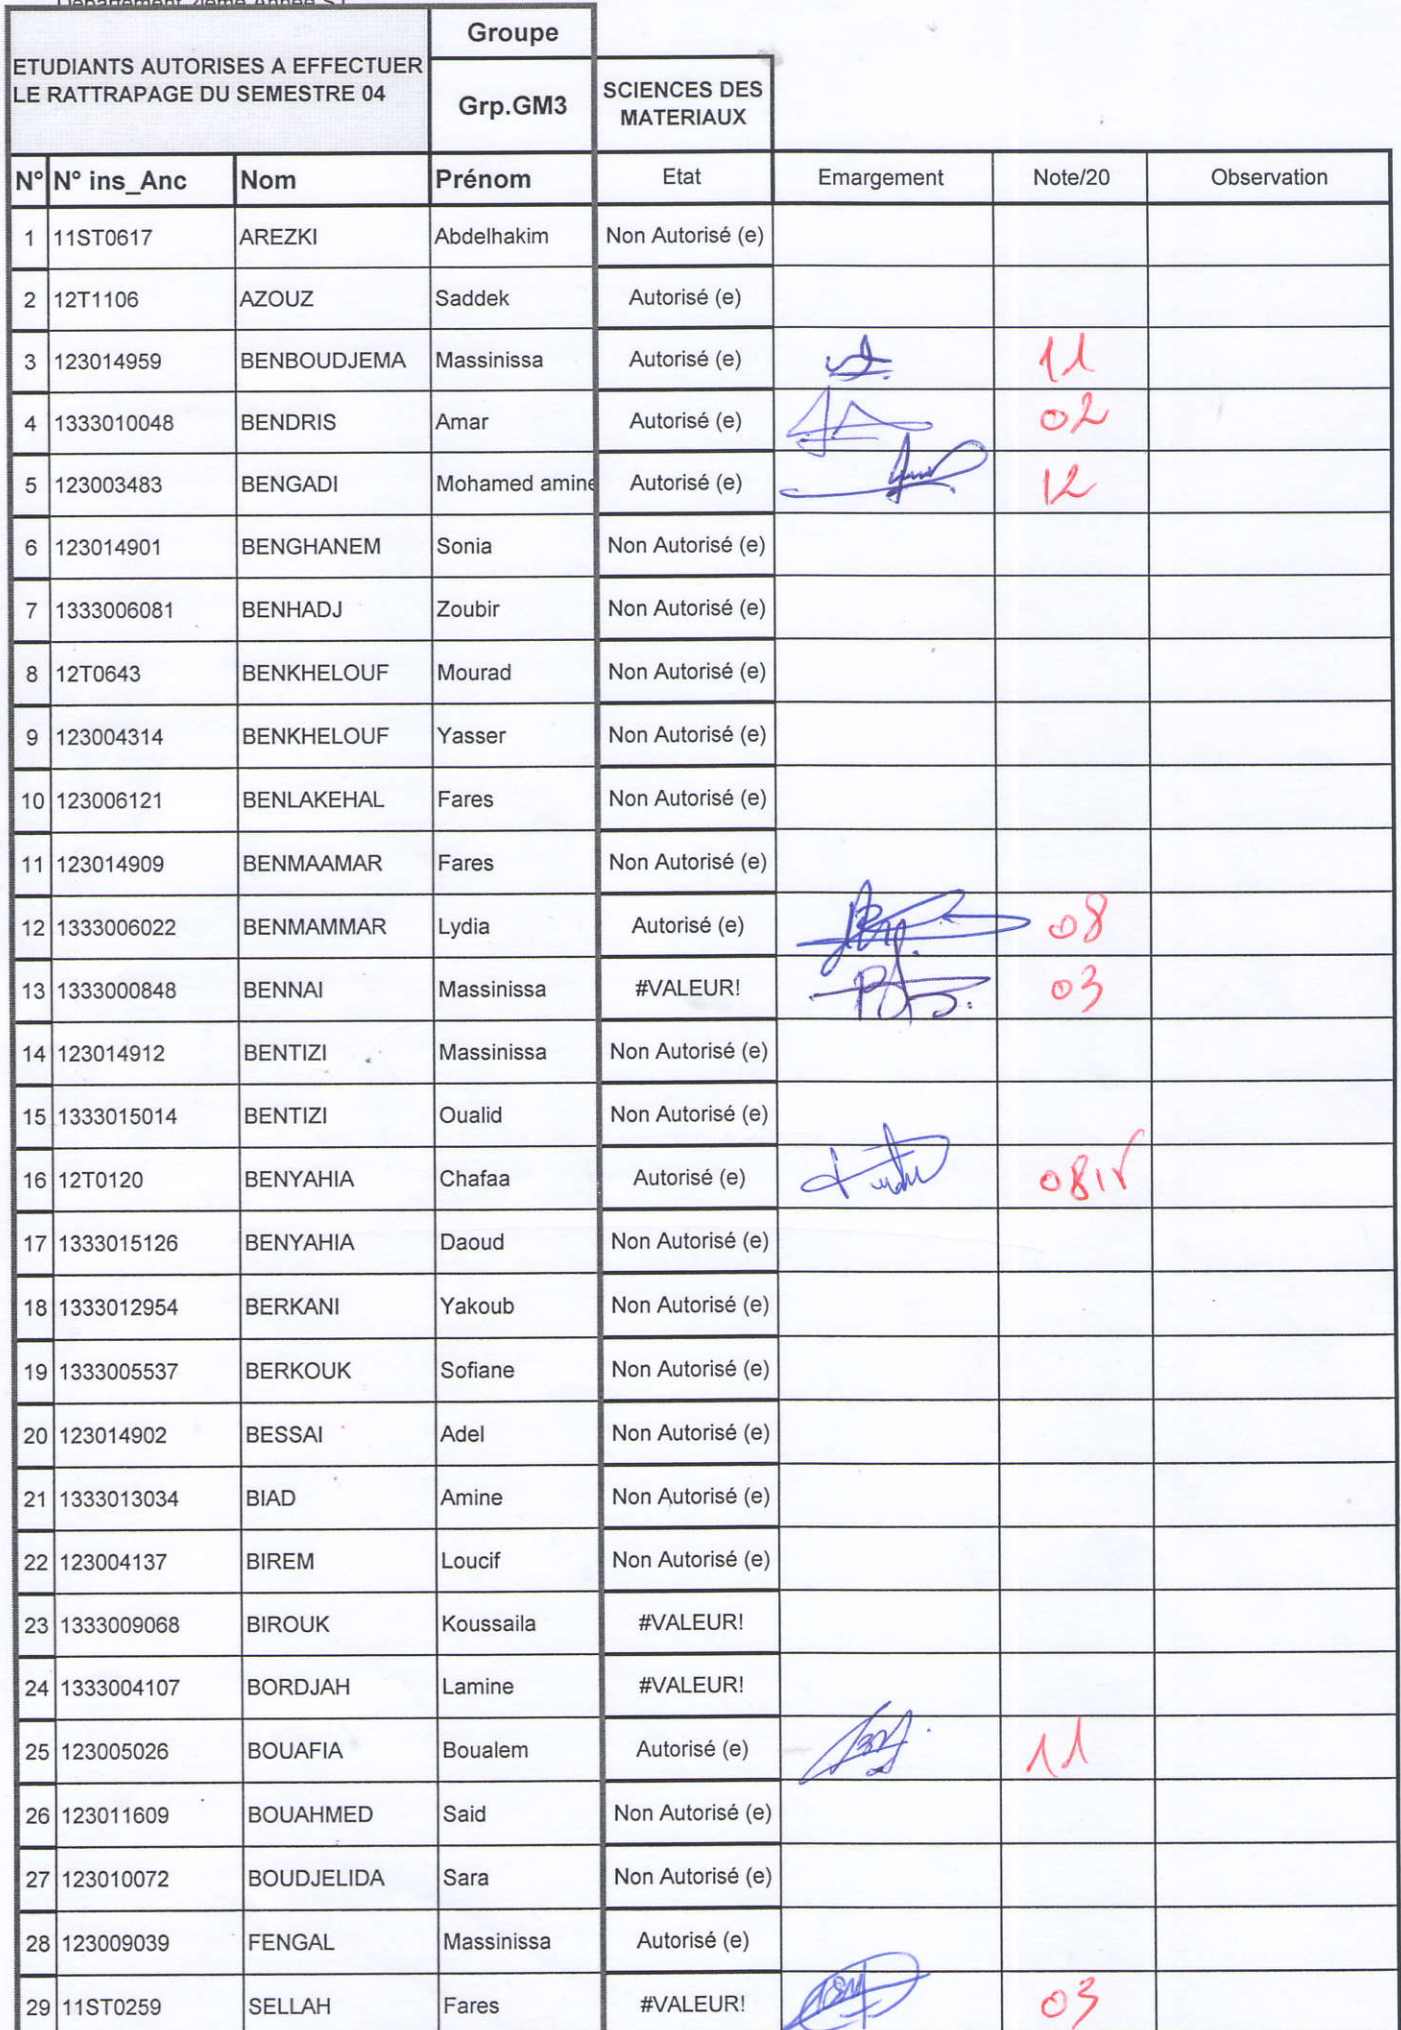 Département 2ième Année ST
Groupe
ETUDIANTS AUTORISES A EFFECTUER
LE RATTRAPAGE DU SEMESTRE 04
Grp.GM3
SCIENCES DES
MATERIAUX
N° N° ins_Anc Nom Prénom Etat Emargement Note/20 Observation
1 11ST0617 AREZKI Abdelhakim Non Autorisé (e)
2 12T1106 AZOUZ Saddek Autorisé (e)
3 123014959 BENBOUDJEMA Massinissa Autorisé (e) 11
4 1333010048 BENDRIS Amar Autorisé (e) 02
5 123003483 BENGADI Mohamed amine Autorisé (e) 12
6 123014901 BENGHANEM Sonia Non Autorisé (e)
7 1333006081 BENHADJ Zoubir Non Autorisé (e)
8 12T0643 BENKHELOUF Mourad Non Autorisé (e)
9 123004314 BENKHELOUF Yasser Non Autorisé (e)
10 123006121 BENLAKEHAL Fares Non Autorisé (e)
11 123014909 BENMAAMAR Fares Non Autorisé (e)
12 1333006022 BENMAMMAR Lydia Autorisé (e) 08
13 1333000848 BENNAI Massinissa #VALEUR! 03
14 123014912 BENTIZI Massinissa Non Autorisé (e)
15 1333015014 BENTIZI Oualid Non Autorisé (e)
16 12T0120 BENYAHIA Chafaa Autorisé (e)
17 1333015126 BENYAHIA Daoud Non Autorisé (e)
18 1333012954 BERKANI Yakoub Non Autorisé (e)
19 1333005537 BERKOUK Sofiane Non Autorisé (e)
20 123014902 BESSAI Adel Non Autorisé (e)
21 1333013034 BIAD Amine Non Autorisé (e)
22 123004137 BIREM Loucif Non Autorisé (e)
23 1333009068 BIROUK Koussaila #VALEUR!
24 1333004107 BORDJAH Lamine #VALEUR!
25 123005026 BOUAFIA Boualem Autorisé (e) 11
26 123011609 BOUAHMED Said Non Autorisé (e)
27 123010072 BOUDJELIDA Sara Non Autorisé (e)
28 123009039 FENGAL Massinissa Autorisé (e)
29 11ST0259 SELLAH Fares #VALEUR! 03